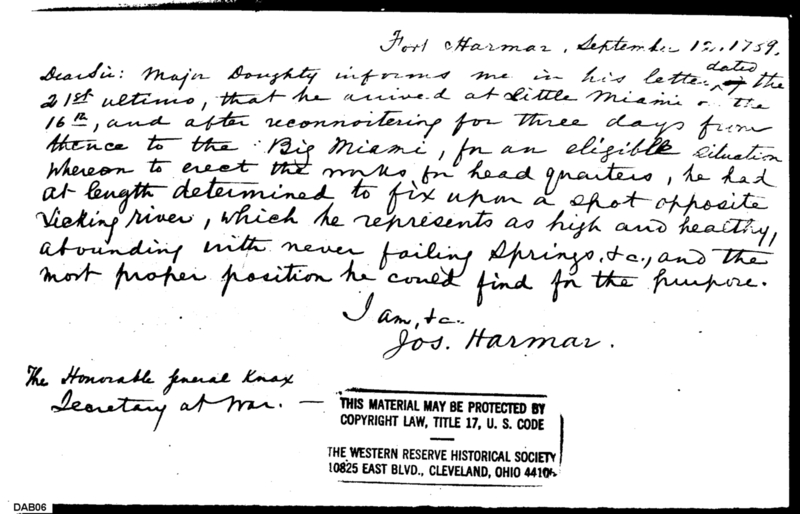 Fort Harmar, September 12, 1789.
Dear Sir: Major Doughty informs me in his letter, dated the
21st ultimo, that he arrived at Little Miami on the
16th, and after reconnoitering for three days from
thence to the Big Miami, for an eligible situation
whereon to erect the works for head quarters, he had
at length determined to fix upon a spot opposite
Licking river, which he represents as high and healthy,
abounding with never failing Springs, &c., and the
most proper position he could find for the purpose.
I am, &c.
Jos. Harmar.
The Honorable General Knox
Secretary at War. —
THIS MATERIAL MAY BE PROTECTED BY
COPYRIGHT LAW, TITLE 17, U. S. CODE
THE WESTERN RESERVE HISTORICAL SOCIETY
10825 EAST BLVD., CLEVELAND, OHIO 44106
DAB06